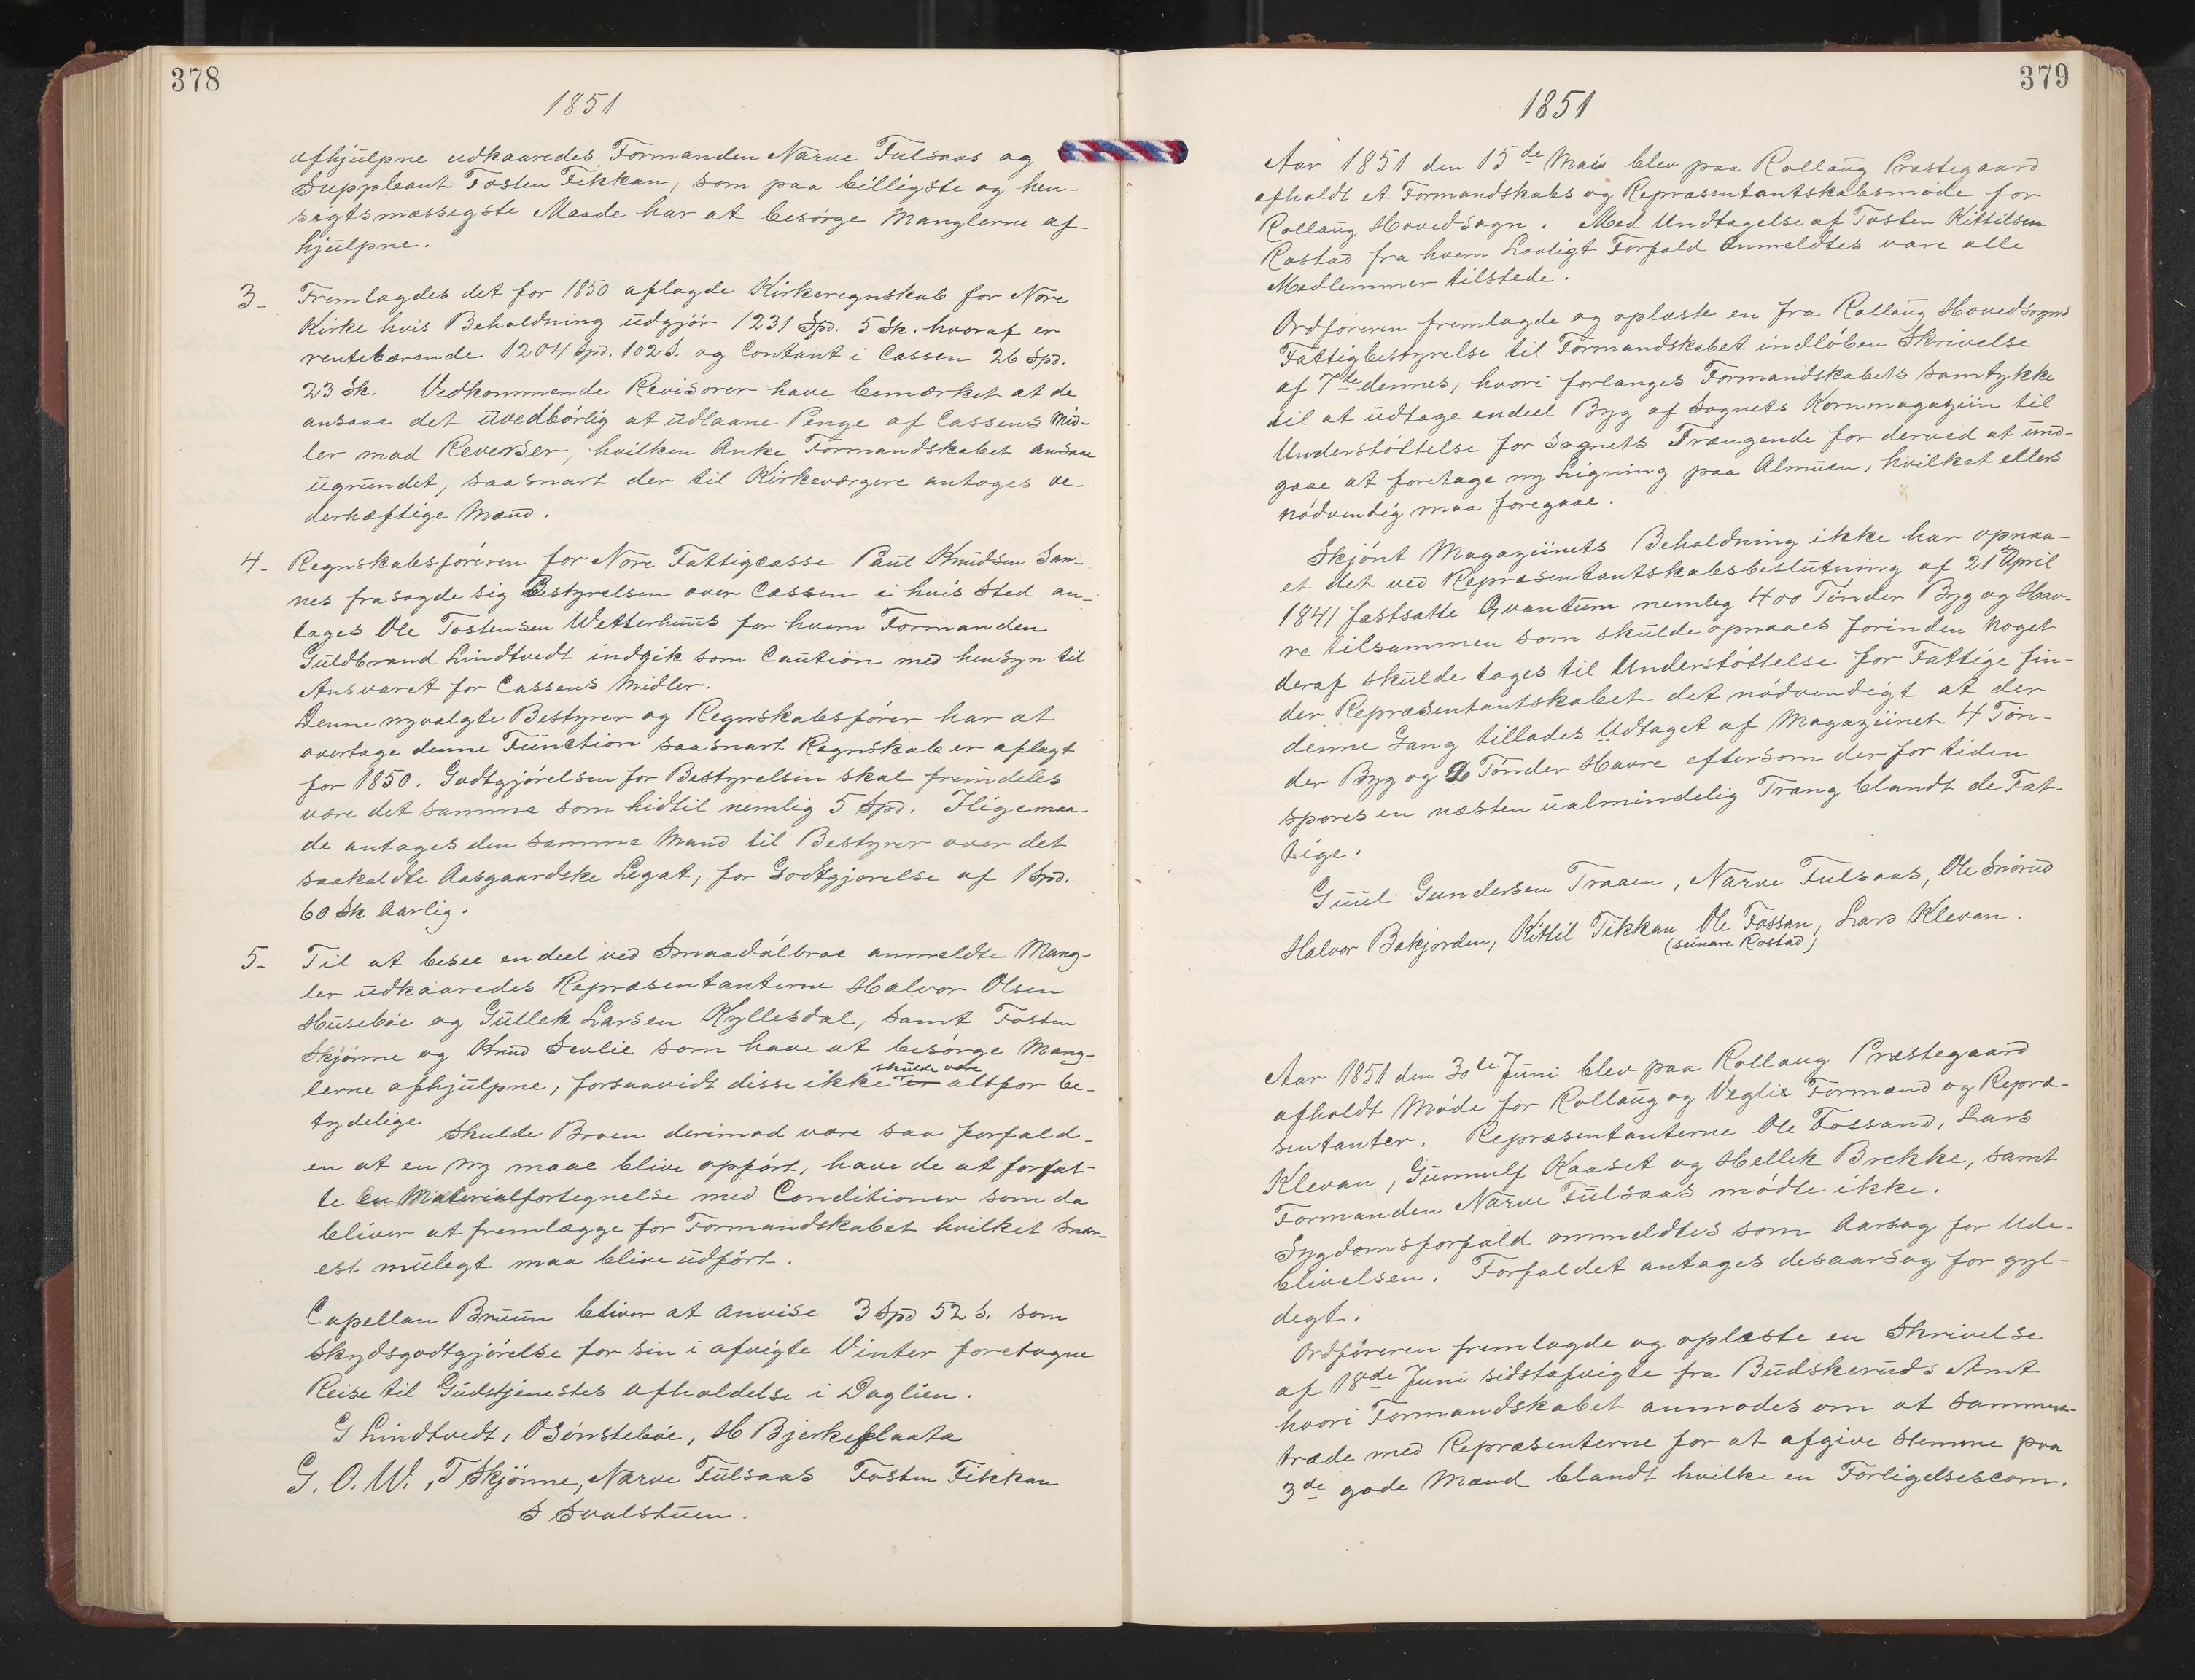 378
1851
afhjülpne udkaaredes Formanden Narve Fulsaas og
Suppleant Tosten Tikkan, som paa billigste og hen-
sigtsmæssigste Maade har at besörge Manglerne af-
hjülpne.
3- Fremlagdes det for 1850 aflagde Kirkeregnskab for Nore
Kirke hvis Beholdning üdgjör 1231 Spd. 5 Sk. hvoraf er
rentebærende 1204 Spd. 102 S. og Contant i Cassen 26 Spd.
23 Sk. Vedkommende Revisorer have bemærket at de
ansaae det üvedbörlig at üdlaane Penge af Cassens Mid-
ler mod Reverser, hvilken Anke Formandskabet ansaae
ügründet, saasnart der til Kirkeværgere antoges ve-
derhæftige Mænd.
4- Regnskabsföreren for Nore Fattigcasse Paul Knudsen San-
nes frasagde sig Bestyrelsen over Cassen i hvis Sted an-
tages Ole Tostensen Wetterhuus for hvem Formanden
Güldbrand Lindtvedt indgik som Caution med hensyn til
Ansvaret for Cassens Midler.
Denne nyvalgte Bestyrer og Regnskabsfører har at
overtage denne Function saasnart Regnskab er aflagt
for 1850. Godtgjörelsen for Bestyrelsen skal fremdeles
være det samme som hidtil nemlig 5 Spd. Iligemaa-
de antages den samme Mand til Bestyrer over det
saakaldte Aasgaardske Legat, for Godtgjørelse af 1 Spd.
60 Sk Aarlig.
5- Til at besee endeel ved Smaadölbroe anmeldte Mang-
ler üdkaaredes Repræsentanterne Halvor Olsen
Hüseböe og Güllek Larsen Kyllesdal, samt Tosten
Skjönne og Knud Sevlie som have at besörge Mang-
skulde være
lerne afhjülpne, forsaavidt disse ikke er altfor be-
tydelige Skulde Broen derimod være saa forfald-
en at en ny maae blive opfört, have de at forfat-
te en Materialfortegnelse med Conditioner som da
bliver at fremlægge for Formandskabet hvilket snar-
est mülegt maa blive üdfört.
Capellan Bruun bliver at anvise 3 Spd 52 S. som
Skydsgodtgjörelse for sin i afvigte Vinter foretagne
Reise til Gudstjenestes afholdelse i Daglien.
G Lindtvedt, O Sönsteböe, H Bjerkeflaata
G. O. W., T Skjönne, Narve Fülsaas Tosten Tikkan
S Svalstuen.
379
1851
Aar 1851 den 15de Mai blev paa Rollaug Præstegaard
afholdt et Formandskabs og Repræsentantskabsmöde for
Rollaug Hovedsogn. Med Undtagelse af Tosten Kittilsen
Rostad fra hvem Lovligt Forfald Anmeldtes vare alle
Medlemmer tilstede.
Ordföreren fremlagde og oplæste en fra Rollaug Hovedsogns
Fattigbestyrelse til Formandskabet indlöben Skrivelse
af 7de dennes, hvori forlanges Formandskabets Samtykke
til at üdtage endeel Byg af Sognets Kornmagaziin til
Understöttelse for Sognets Trængende for derved at ünd-
gaae at foretage ny Ligning paa Almüen, hvilket ellers
nödvendig maa foregaae.
Skjönt Magaziinets Beholdning ikke har opnaa-
et det ved Repræsentantskabsbeslütning af 21de April
1841 fastsatte Qvantum nemleg 400 Tönder Byg og Hav-
re tilsammen som skulde opnaaes forinden noget
deraf skülde tages til Understöttelse for Fattige fin-
der Repræsentantskabet det nödvendigt at der
denne Gang tillades Udtaget af Magaziinet 4 Tön-
der Byg og Tönder Havre eftersom der for tiden
spores en næsten üalmindelig Trang blandt de Fat-
tige.
Guul Gundersen Traaen, Narve Fulsaas, Ole Snörud
Halvor Bakjorden, Kittil Tikkan, Ole Fossan, Lars Klevan.
(seinare Rostad)
Aar 1851 den 30te Juni blev paa Rollaug Præstegaard
afholdt Möde for Rollaug og Veglis Formænd og Repræ-
sentanter. Repræsentanterne Ole Fossand, Lars
Klevan, Günnulf Kaaset og Hellek Brekke, samt
Formanden Narve Fülsaas mödte ikke.
Sygdomsforfald anmeldtes som Aarsag for Ude-
blivelsen. Forfaldet antages desaarsag for gyl-
degt.
Ordföreren fremlagde og oplæste en Skrivelse
af 18de Juni sidstafvigte fra Budskeruds Amt
hvori Formandskabet anmodes om at sammen-
træde med Repræsenterne for at afgive Stemme paa
3de gode Mænd blandt hvilke en Forligelsescom.